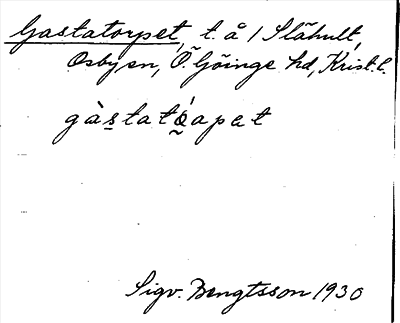 Gastatorpet, t. å / Slähult,
Osby sn, Ö. Göinge hd, Krist. l.
Sigv. Bengtsson 1930